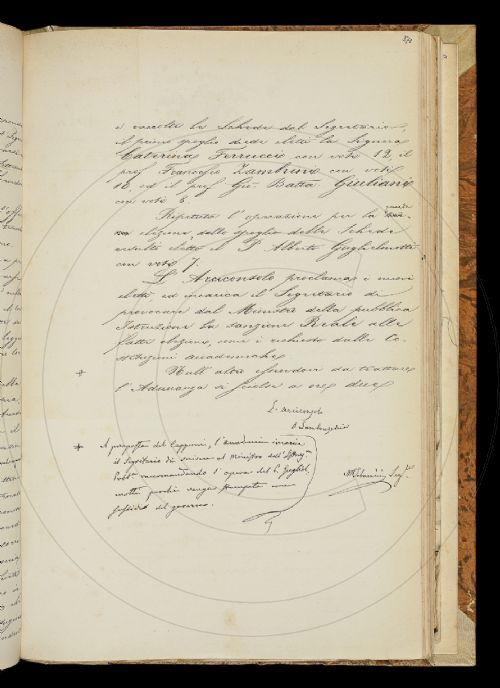 e raccolte le Schede dal Segretario,
il primo spoglio diede eletti la Signora
Caterina Ferrucci con voti 12, il
prof Francesco Zambrini con voti
ed il prof Gio. Batta Giuliani
con voti 8.
Ripetuta l'operazione per la quarta
elezione, dallo spoglio delle Schede
resultò eletto il P. Alberto Guglielmotti
con voti 7.
L'Arciconsolo proclama i nuovi
eletti ed incarica il Segretario di
provocare dal Ministro della pubblica
Istruzione la sanzione Reale alle
fatte elezioni, come è richiesto dalle Co-
stituzioni accademiche.
+ Null'altro essendovi da trattare
l'Adunanza si scioglie a ore due
L'arciconsolo
+ A proposta del Capponi, l'accademia incarica
il Segretario di scrivere al Ministro dell'Istruz.
Pubb. raccomandando l'opera del P. Gugliel-
motti perché venga stampata con
sussidio del governo.